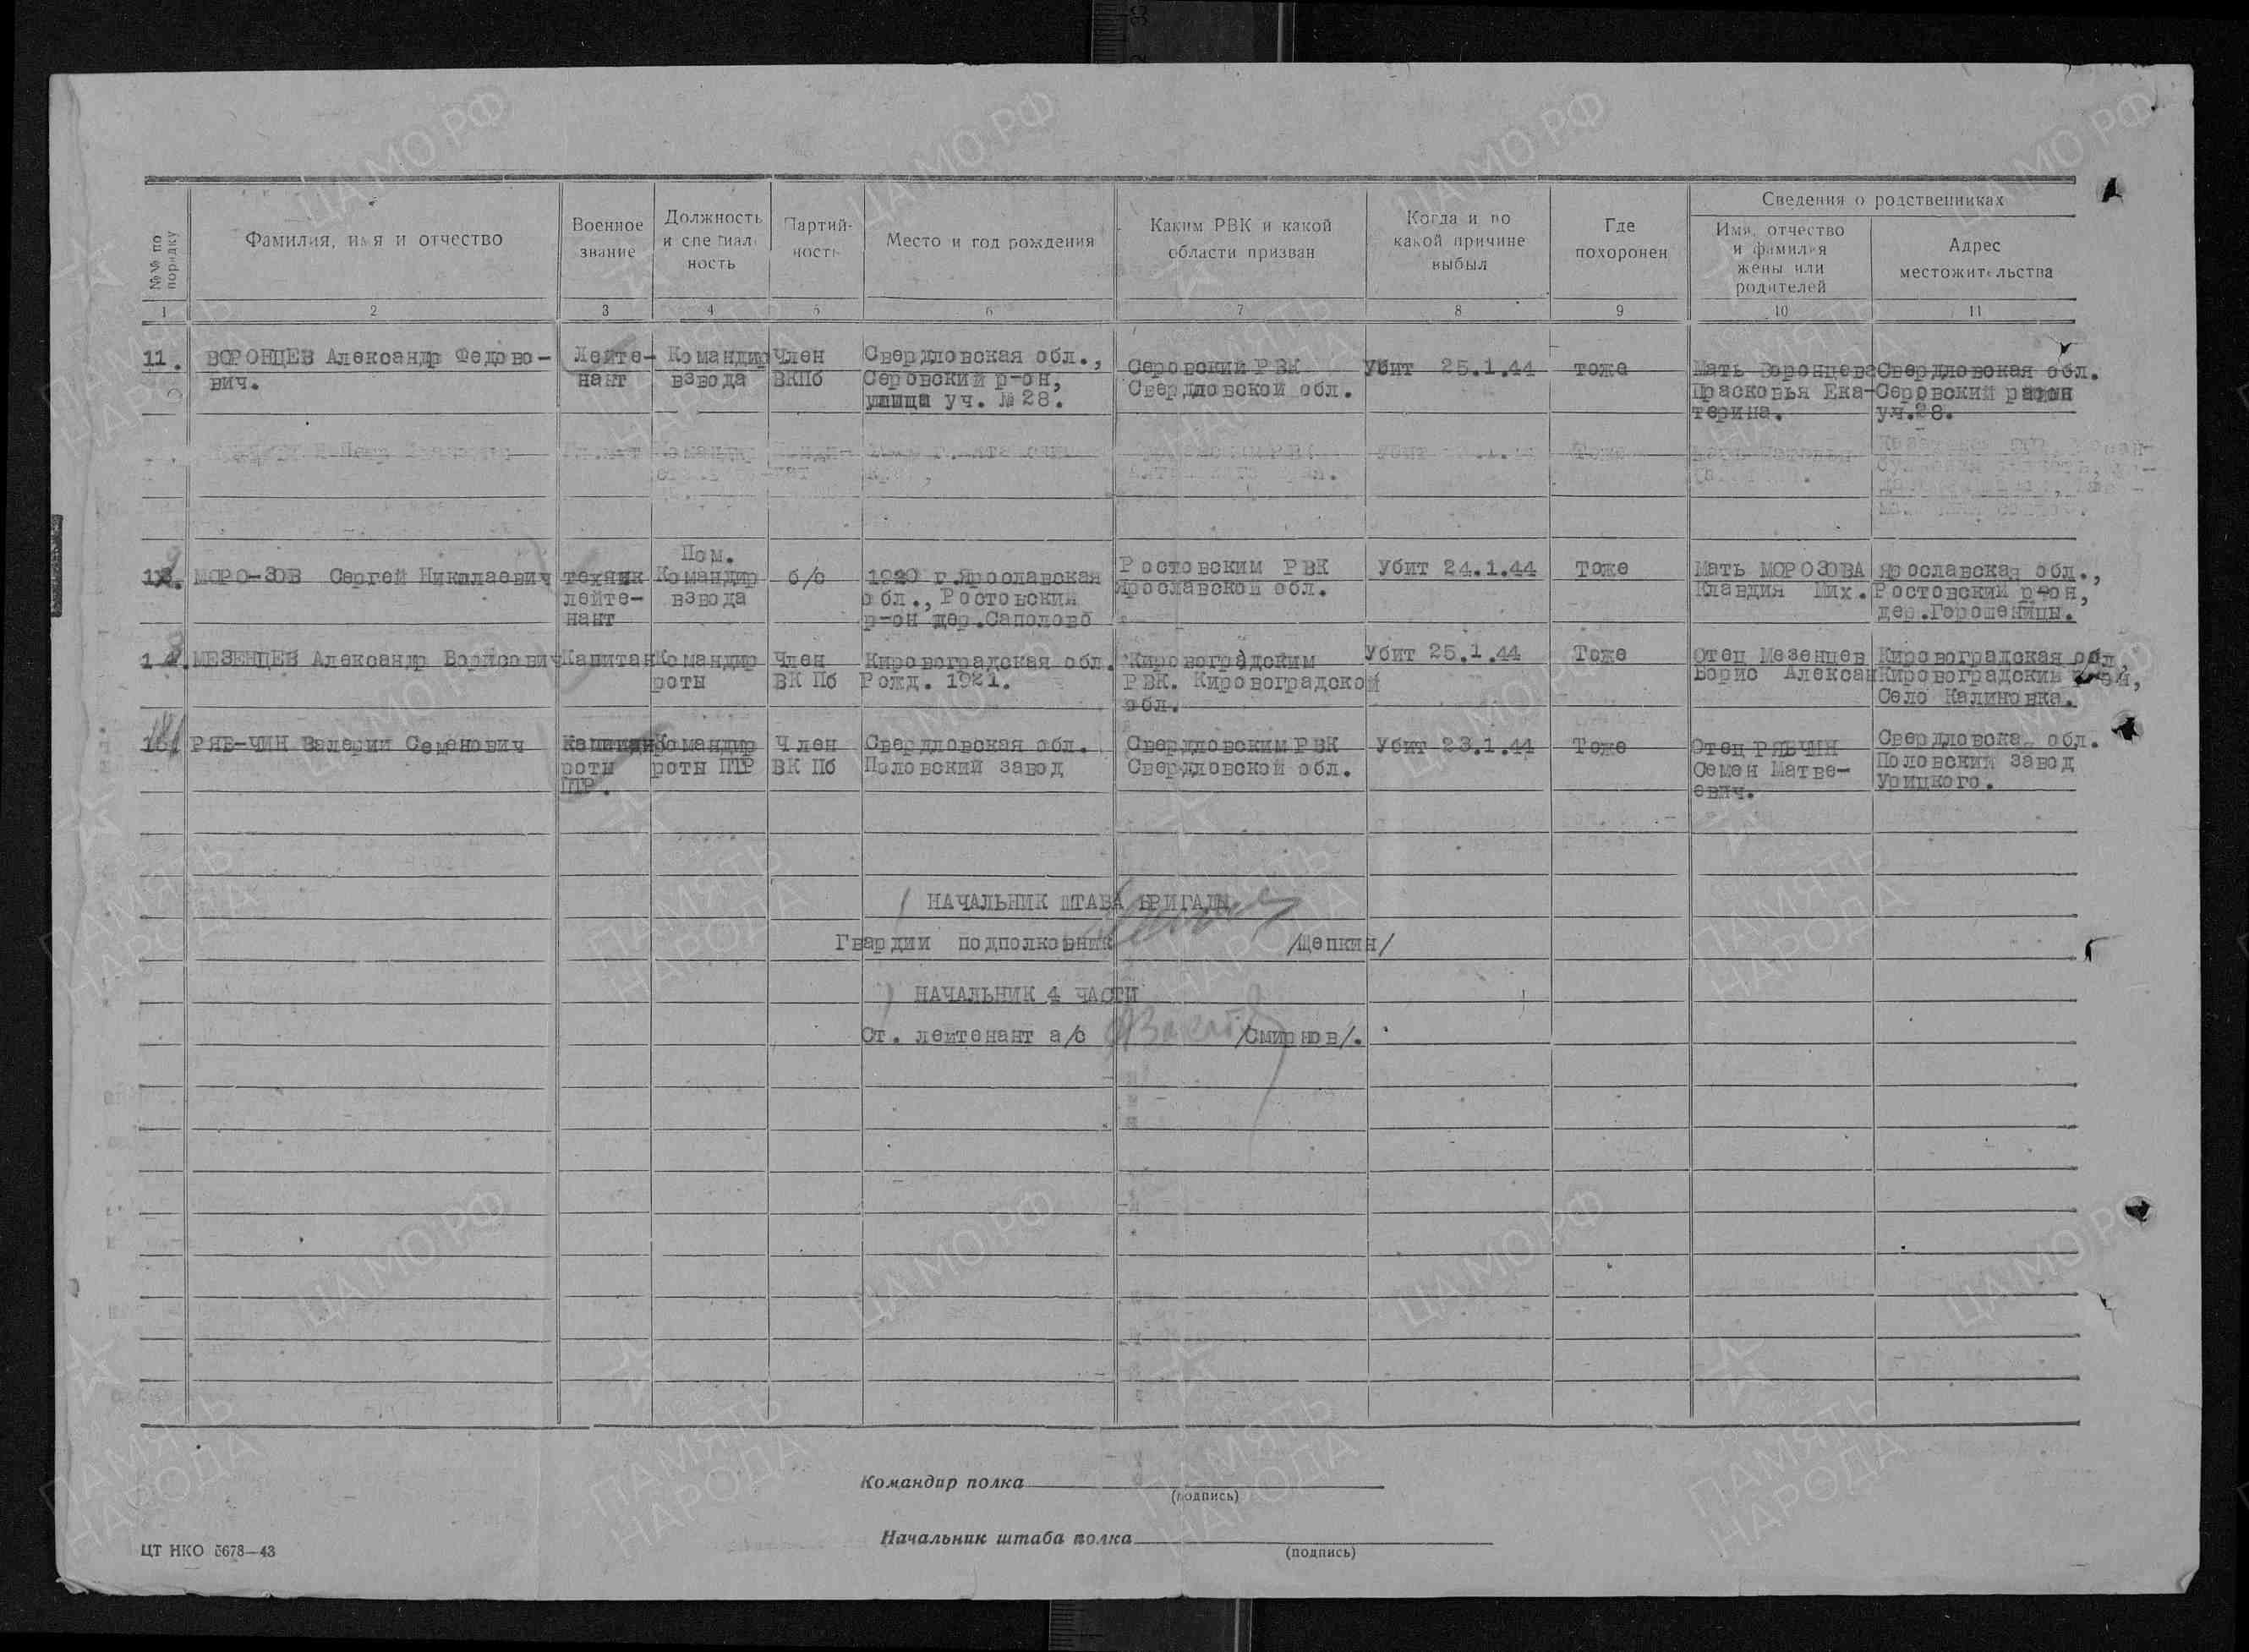 №№ по порядку
Фамилия, имя и отчество
Военное звание
Должность и специальность
Партийность
Место и год рождения
Каким РВК и какой области призван
Когда и по какой причине выбыл
Где похоронен
Сведения о родственниках
Имя, отчество и фамилия жены или родителей
Адрес местожительства
1 2 3 4 5 6 7 8 9 10 11
11. ВОРОНЦЕВ Александр Федово- Лейте- Командир Член Свердловская обл., Серовский РВК Убит 25.1.44 тоже Мать Воронцева Свердловская обл.
вич. нант взвода ВКПб Серовский р-он, Свердловской обл. Прасковья Ека- Серовский район
улица уч. №28. терина. уч.28.
МОРО-ЗОВ Сергей Николаевич техник Пом. Командир б/о 1920 г.Ярославская Ростовским РВК Убит 24.1.44 Тоже Мать МОРОЗОВА Ярославская обл.,
лейте- взвода обл., Ростовский Ярославской обл. Клавдия Мих. Ростовский р-он,
нант р-он дер.Саполово дер.Горошеницы.
МЕЗЕНЦЕВ Александр Борисович Капитан Командир Член Кировоградская обл. Кировоградским Убит 25.1.44 Тоже Отец Мезенцев Кировоградская обл,
роты ВК Пб Рожд. 1921. РВК. Кировоградской Борис Алексан Кировоградский р-он,
обл. Село Калиновка.
РЯБ-ЧИН Валерий Семенович Капитан Командир Член Свердловская обл. Свердловским РВК Убит 23.1.44 Тоже Отец РЯБЧИН Свердловска обл.
роты роты ПТР ВК Пб Половский завод Свердловской обл. Семен Матве- Половский завод
ПТР. евич. Урицкого.
НАЧАЛЬНИК ШТАБА БРИГАДЫ
Гвардии подполковник /Щепкин/
НАЧАЛЬНИК 4 ЧАСТИ
Ст. лейтенант а/с /Смирнов/.
Командир полка
(подпись)
Начальник штаба полка
(подпись)
ЦТ НКО 5678—43
ЦАМО РФ
ПАМЯТЬ НАРОДА